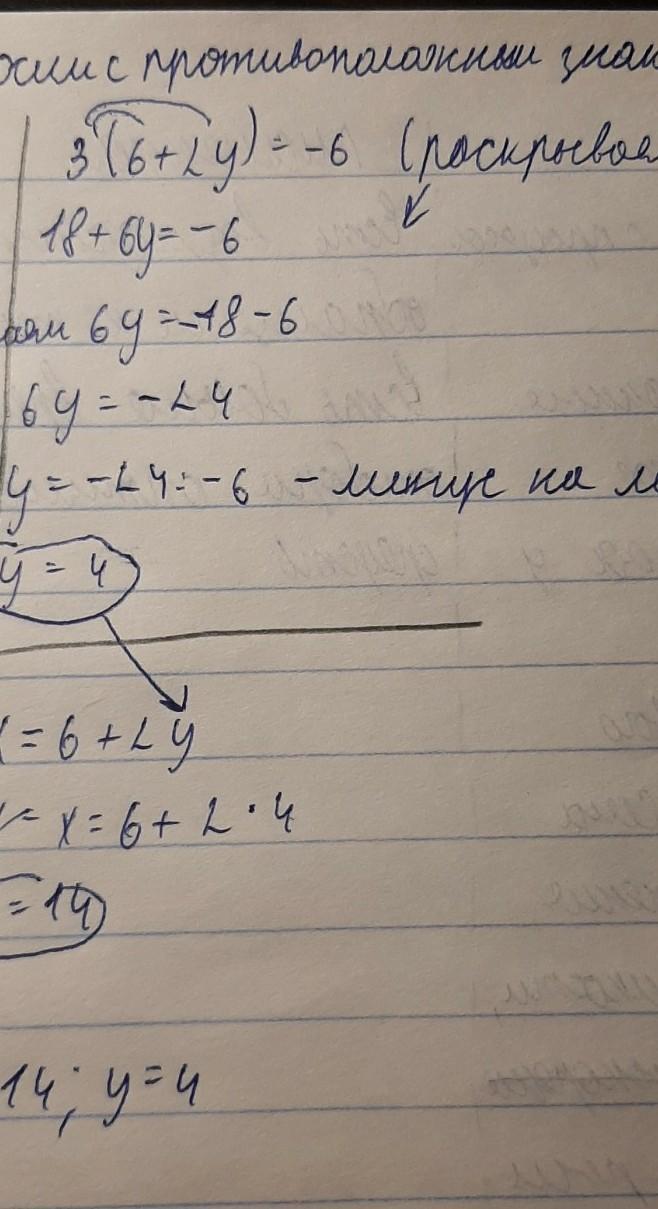 с противоположным
3(6+2y) = -6 (
18+6y= -6
6y =-18-6
6y = -24
y = -24:-6 - минус на
y = 4
= 6 + 2y
x = 6 + 2 · 4
= 14
14; y = 4